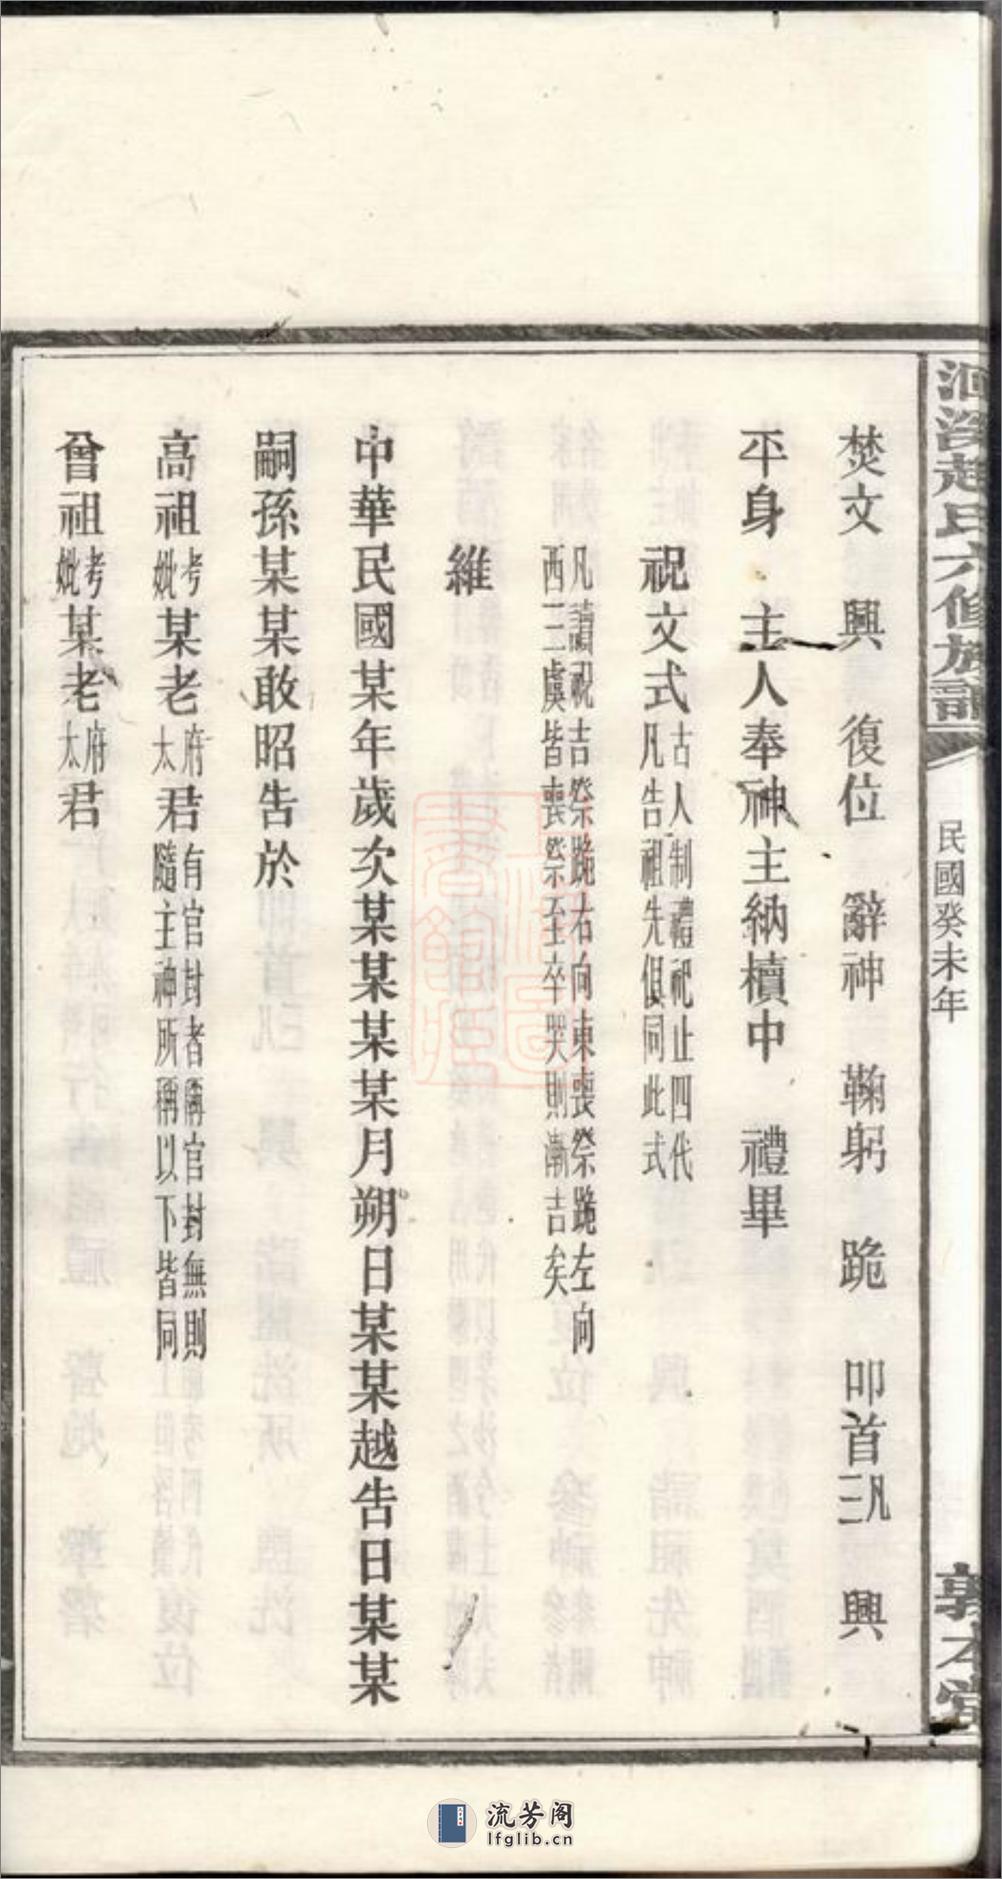 焚文　興　復位　辭神　鞠躬　跪　叩首凡三　興
平身　主人奉神主納櫝中　禮畢
祝文式古人制禮祀止四代凡告祖先俱同此式
凡讀祝吉祭跪右向東喪祭跪左向西三虞皆喪祭至卒哭則漸吉矣
維
中華民國某年歲次某某某某月朔日某某越告日某某
嗣孫某某敢昭告於
高祖考妣某老府太君有官封者稱官封無則隨主神所稱以下皆同
曾祖考妣某老府太君
趙氏六修族譜
民國癸未年
敦本堂
流芳阁
lfglib.cn